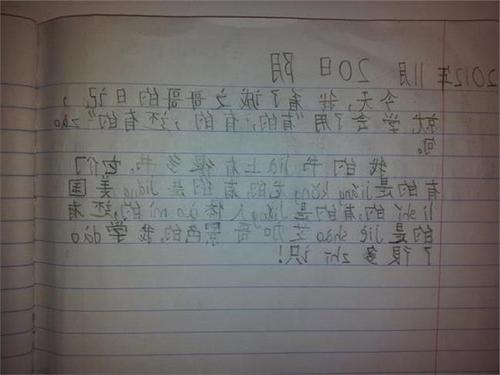 2012年 11月 20日 阴
今天,我看了诚之哥哥的日记,
就学会了用“有的,有的,还有的”zào
句。
我的书jià上有很多书,它们
有的是jiǎng kǒng龙的,有的是jiǎng美国
lì shǐ的,有的是jiǎng人体ào mì的,还有
的是jiè shào芝加哥景色的,我学dào
了很多zhī识!